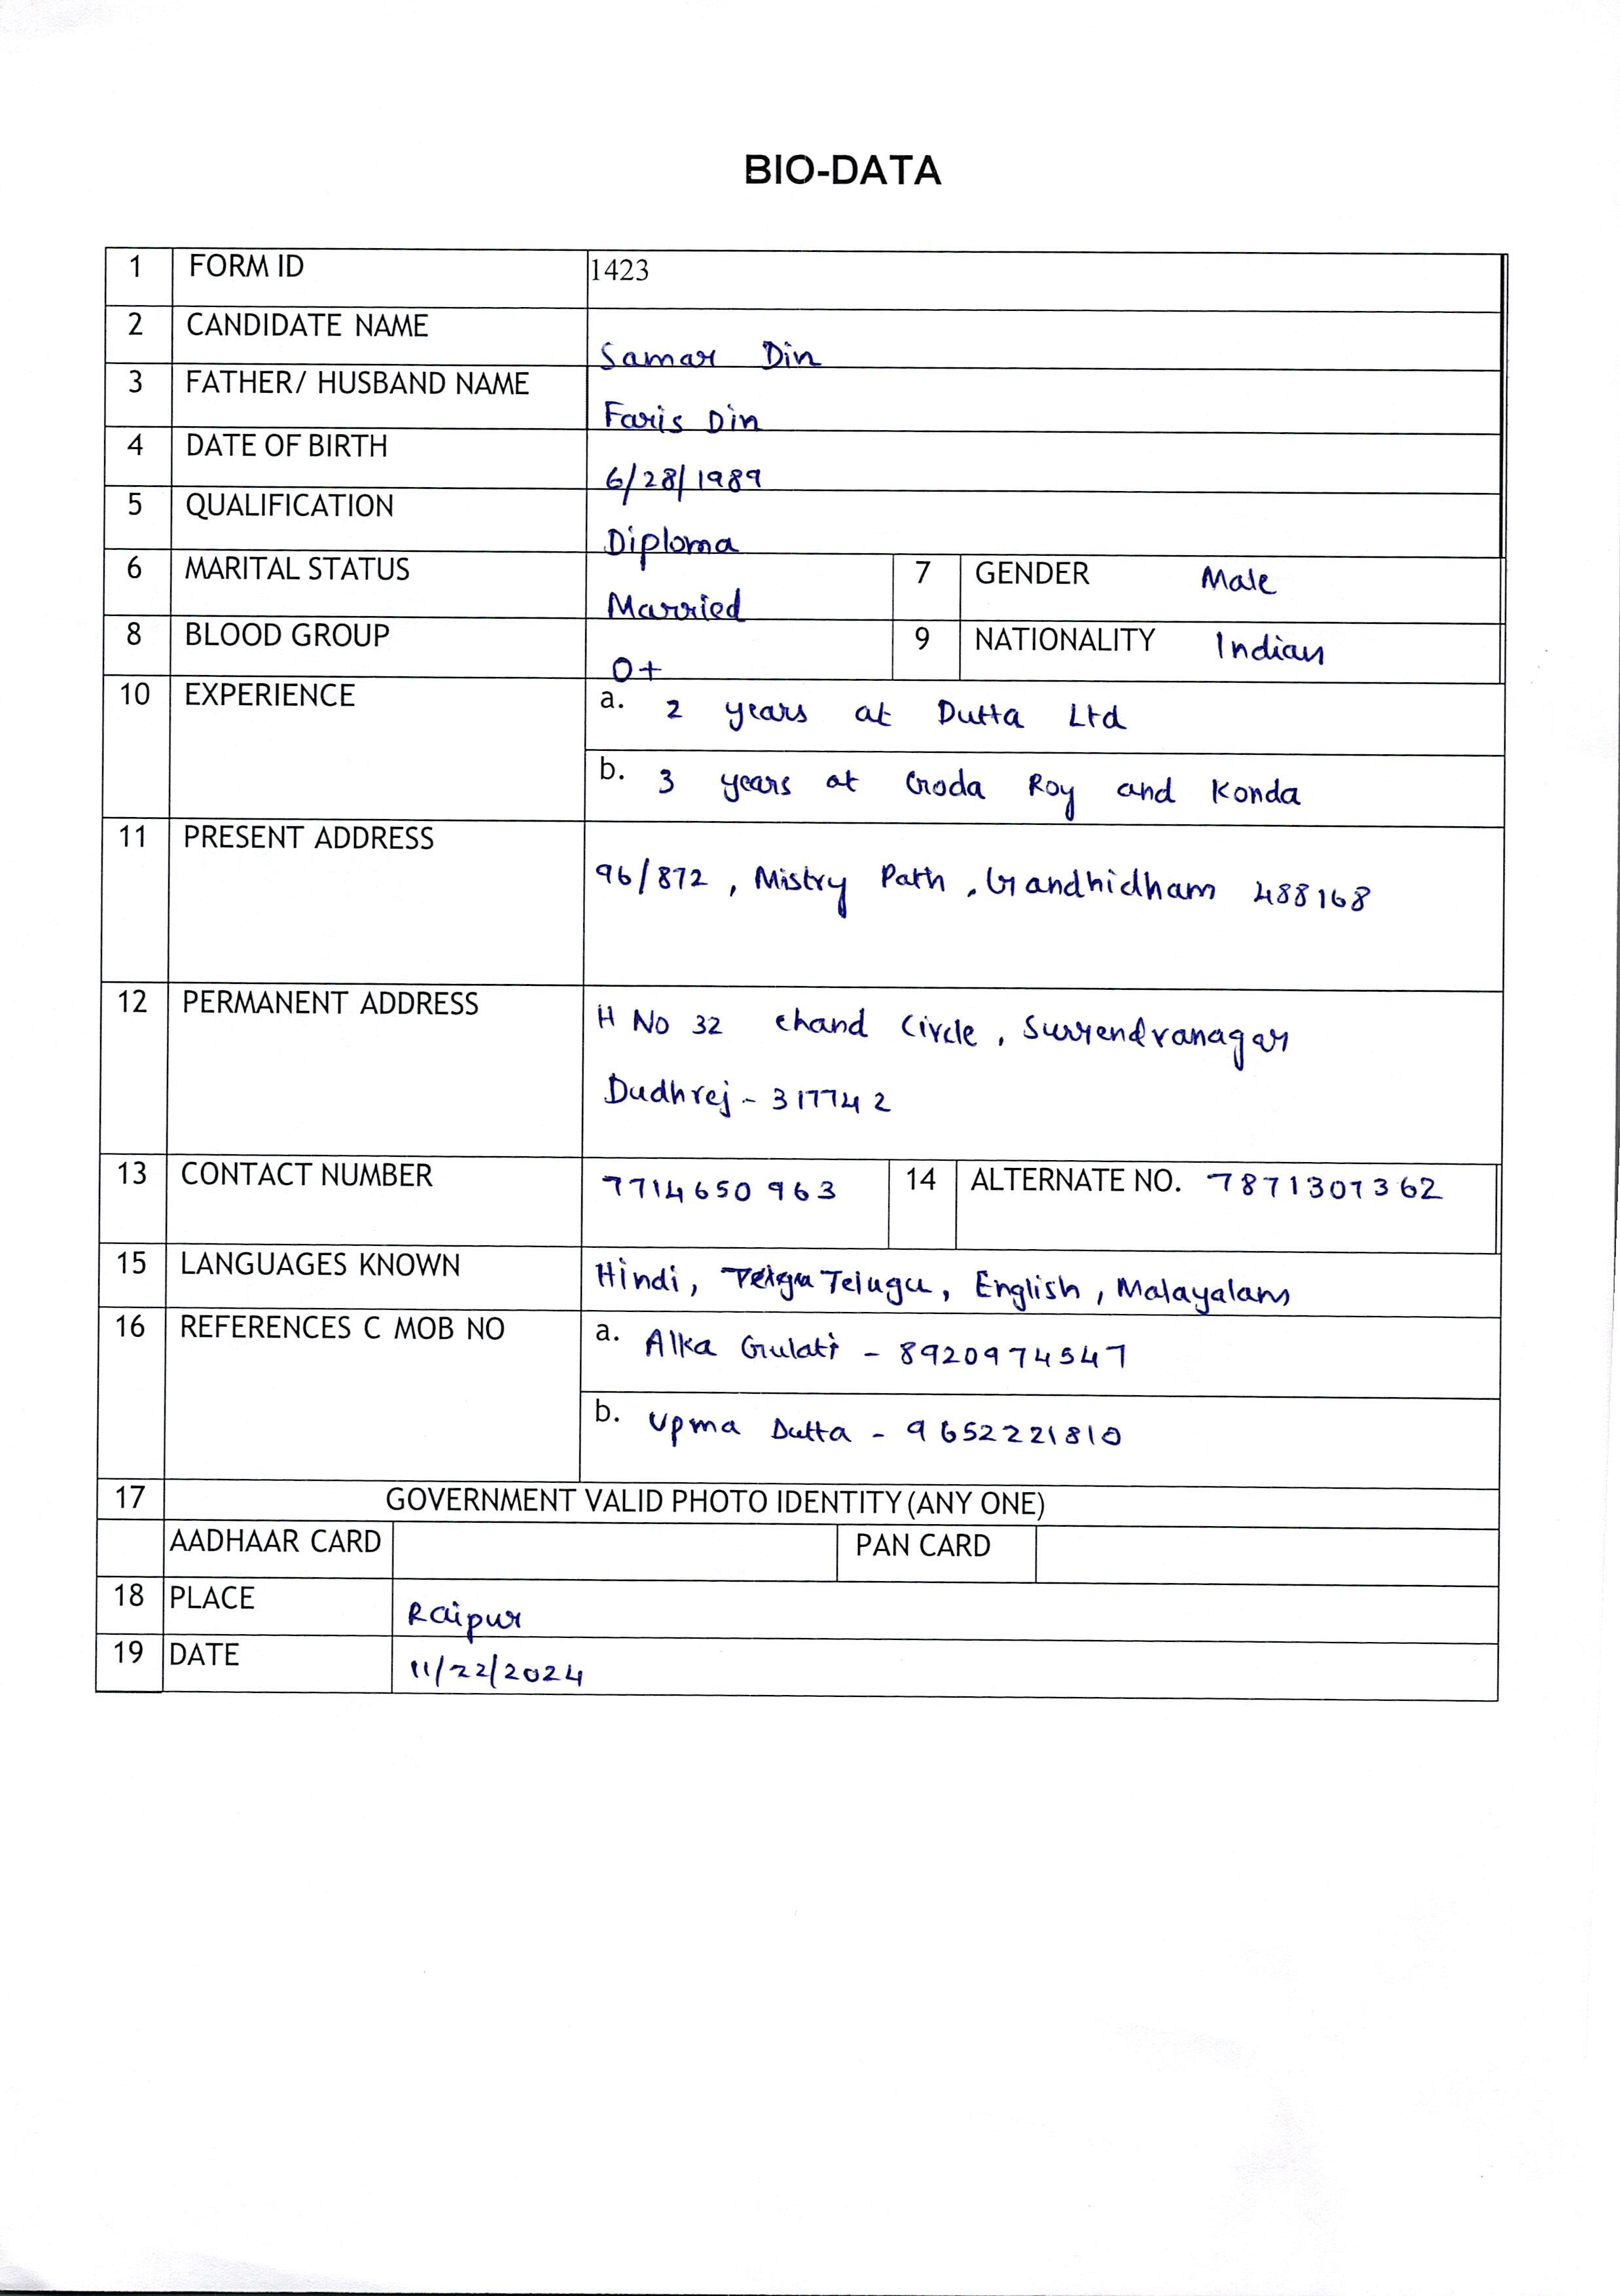 BIO-DATA
1 FORM ID 1423
2 CANDIDATE NAME Samar Din
3 FATHER/ HUSBAND NAME Faris Din
4 DATE OF BIRTH 6/28/1989
5 QUALIFICATION Diploma
6 MARITAL STATUS Married 7 GENDER Male
8 BLOOD GROUP O+ 9 NATIONALITY Indian
10 EXPERIENCE a. 2 years at Dutta Ltd
b. 3 years at Goda Roy and Konda
11 PRESENT ADDRESS 96/872, Mistry Path, Gandhidham 488168
12 PERMANENT ADDRESS H No 32 Chand Circle, Surrendranagar
Dudhrej - 317742
13 CONTACT NUMBER 7714650963 14 ALTERNATE NO. 7871307362
15 LANGUAGES KNOWN Hindi, Telugu, English, Malayalam
16 REFERENCES C MOB NO a. Alka Gulati - 8920974547
b. Upma Dutta - 9652221810
17 GOVERNMENT VALID PHOTO IDENTITY (ANY ONE)
AADHAAR CARD PAN CARD
18 PLACE Raipur
19 DATE 11/22/2024